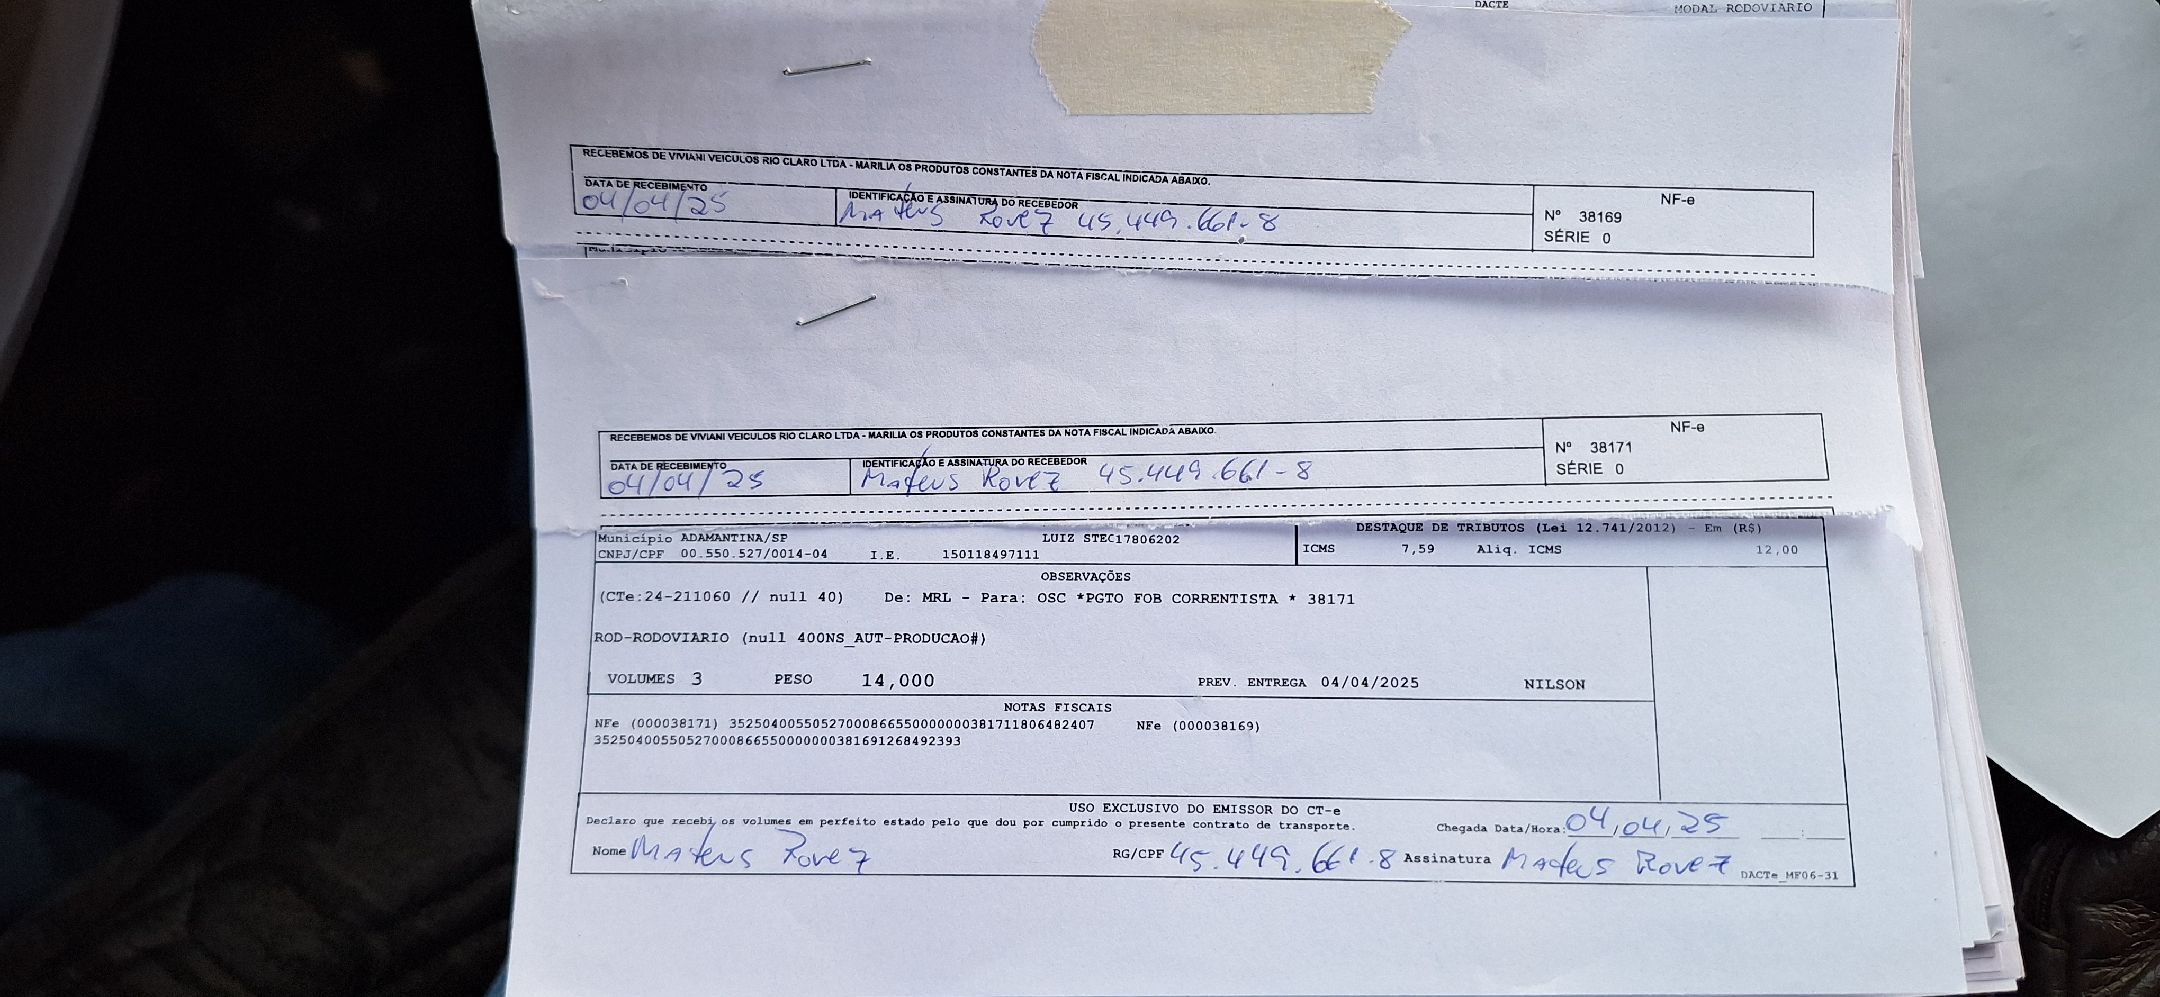 DACTE
MODAL RODOVIARIO
RECEBEMOS DE VIVIANI VEICULOS RIO CLARO LTDA - MARILIA OS PRODUTOS CONSTANTES DA NOTA FISCAL INDICADA ABAIXO.
NF-e
DATA DE RECEBIMENTO
IDENTIFICAÇÃO E ASSINATURA DO RECEBEDOR
Nº 38169
04/04/25
Mateus Rovez 45.449.661-8
SÉRIE 0
RECEBEMOS DE VIVIANI VEICULOS RIO CLARO LTDA - MARILIA OS PRODUTOS CONSTANTES DA NOTA FISCAL INDICADA ABAIXO.
NF-e
Nº 38171
DATA DE RECEBIMENTO
IDENTIFICAÇÃO E ASSINATURA DO RECEBEDOR
SÉRIE 0
04/04/25
Mateus Rovez 45.449.661-8
DESTAQUE DE TRIBUTOS (Lei 12.741/2012) - Em (R$)
Município ADAMANTINA/SP LUIZ STEC17806202
CNPJ/CPF 00.550.527/0014-04 I.E. 150118497111
ICMS 7,59 Aliq. ICMS 12,00
OBSERVAÇÕES
(CTe:24-211060 // null 40) De: MRL - Para: OSC *PGTO FOB CORRENTISTA * 38171
ROD-RODOVIARIO (null 400NS_AUT-PRODUCAO#)
VOLUMES 3 PESO 14,000 PREV. ENTREGA 04/04/2025 NILSON
NOTAS FISCAIS
NFe (000038171) 35250400550527000866550000000381711806482407 NFe (000038169)
35250400550527000866550000000381691268492393
USO EXCLUSIVO DO EMISSOR DO CT-e
Declaro que recebi os volumes em perfeito estado pelo que dou por cumprido o presente contrato de transporte.
Chegada Data/Hora: 04/04/25 __:__
Nome Mateus Rovez RG/CPF 45.449.661.8 Assinatura Mateus Rovez
DACTe_MF06-31